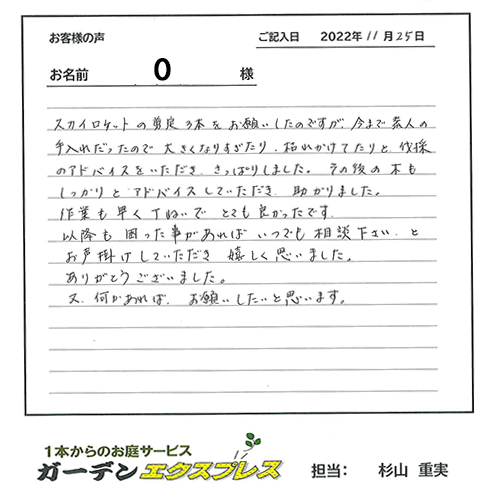 お客様の声 ご記入日 2022年11月25日
お名前 O 様
スカイロケットの剪定3本をお願いしたのですが、今まで素人の
手入れだったので大きくなりすぎたり、枯れかけてたりと伐採
のアドバイスをいただき、さっぱりしました。その後の木も
しっかりとアドバイスしていただき助かりました。
作業も早くてねいでとても良かったです。
以降も困った事があればいつでも相談下さいと
お声掛けしていただき嬉しく思いました。
ありがとうございました。
又、何かあれば、お願いしたいと思います。
1本からのお庭サービス
ガーデンエクスプレス 担当: 杉山 重実